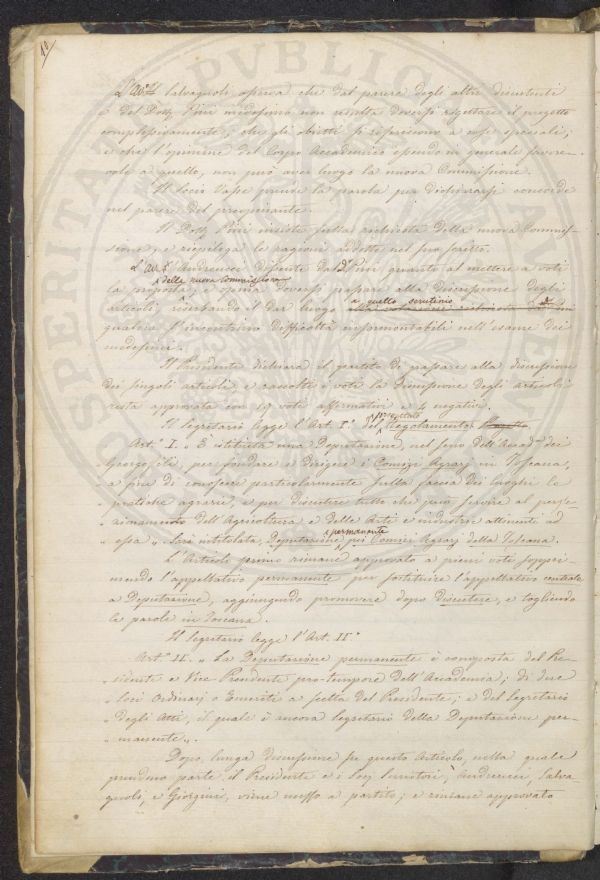 L'Avv. Salvagnoli opina che dal parere degli altri discutenti
e del Dott. Pini medesimo non risulta doversi rigettare il progetto
complessivamente; che gli obietti si riferiscono a cose speciali;
e che l'opinione del Corpo Accademico essendo in generale favore-
vole a quello, non può aver luogo la nuova Commissione.
Il Socio prende la parola per dichiararsi concorde
nel parere del preopinante.
Il Dott. Pini insiste sulla richiesta della nuova Commis-
sione, e riepiloga le ragioni addotte nel suo scritto.
L'Av. Andreucci dissente dal D. Pini quanto al mettere a voti
la proposta della nuova Commissione, e opina doversi passare alla discussione degli
articoli riserbando il dar luogo a quello scrutinio
qualora s'incontrino difficoltà insormontabili nell'esame dei
medesimi.
Il Presidente dichiara il partito di passare alla discussione
dei singoli articoli e raccolti i voti la discussione degli articoli
resta approvata con 19 voti affermativi e 4 negativi.
Il Segretario legge l'Art. I° del progettato Regolamento
Art. I. „ È istituita una Deputazione, nel seno dell'Accad. dei
„ Georgofili, per fondare e dirigere i Comizi Agrarj in Toscana,
„ a fine di conoscere particolarmente sulla faccia dei luoghi le
„ pratiche agrarie, e per discutere tutto che può servire al perfe-
„ zionamento dell'Agricoltura e delle Arti e industrie attenenti ad
„ essa „ Sarà intitolata, Deputazione permanente pei Comizi Agrarj della Toscana.
L'Articolo primo rimane approvato a pieni voti soppri-
mendo l'appellativo permanente per sostituire l'appellativo centrale
a Deputazione, aggiungendo promovere dopo discutere, e togliendo
le parole in Toscana.
Il Segretario legge l'Art. II°
Art. II. „ La Deputazione permanente è composta del Pre-
„ sidente e Vice Presidente pro-tempore dell'Accademia; di due
„ Soci Ordinarj o Emeriti a scelta del Presidente; e del Segretario
„ degli Atti, il quale è ancora Segretario della Deputazione per-
„ manente „.
Dopo lunga discussione su questo Articolo, nella quale
prendono parte il Presidente e i Socj Andreucci, Salva-
gnoli, e Giorgini, viene messo a partito; e rimane approvato